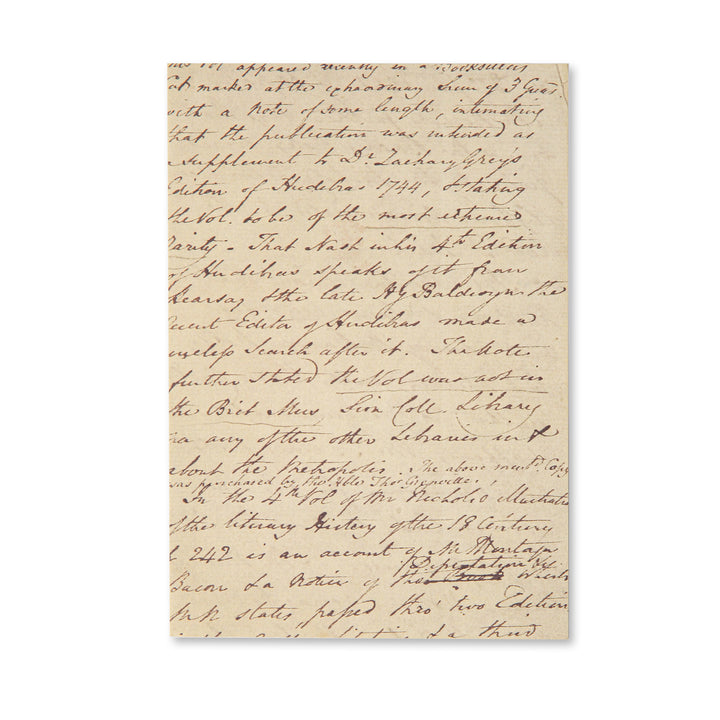 this Vol appeared recently in a Booksellers
Cat marked at the extraordinary Sum of 3 Gueas.
with a Note of some length, intimating
that the publication was intended as
a Supplement to Dr. Zachary Grey's
Edition of Hudibras 1744, & stating
the Vol. to be of the most extreme
rarity - That Nash in his 4th Edition
of Hudibras speaks of it from
hearsay & the late Hy Baldwyn the
recent Editor of Hudibras made a
useless Search after it. The Note
further stated the Vol was not in
the Brit Mus Sion Coll. Library
or any of the other Libraries in &
about the Metropolis. The above mentd. Copy
was purchased by the Hble Thos. Grenville.
In the 4th Vol of Mr Nichols's Illustratio
of the literary History of the 18 Century
p 242 is an account of Mr Montagu
Bacon & a Notice of this Disertation
Mr N states, passed thro' two Edition
a third